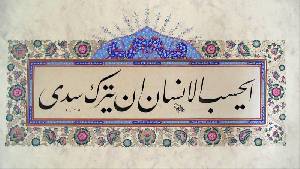 ایحسب الانسان ان یترک سدی